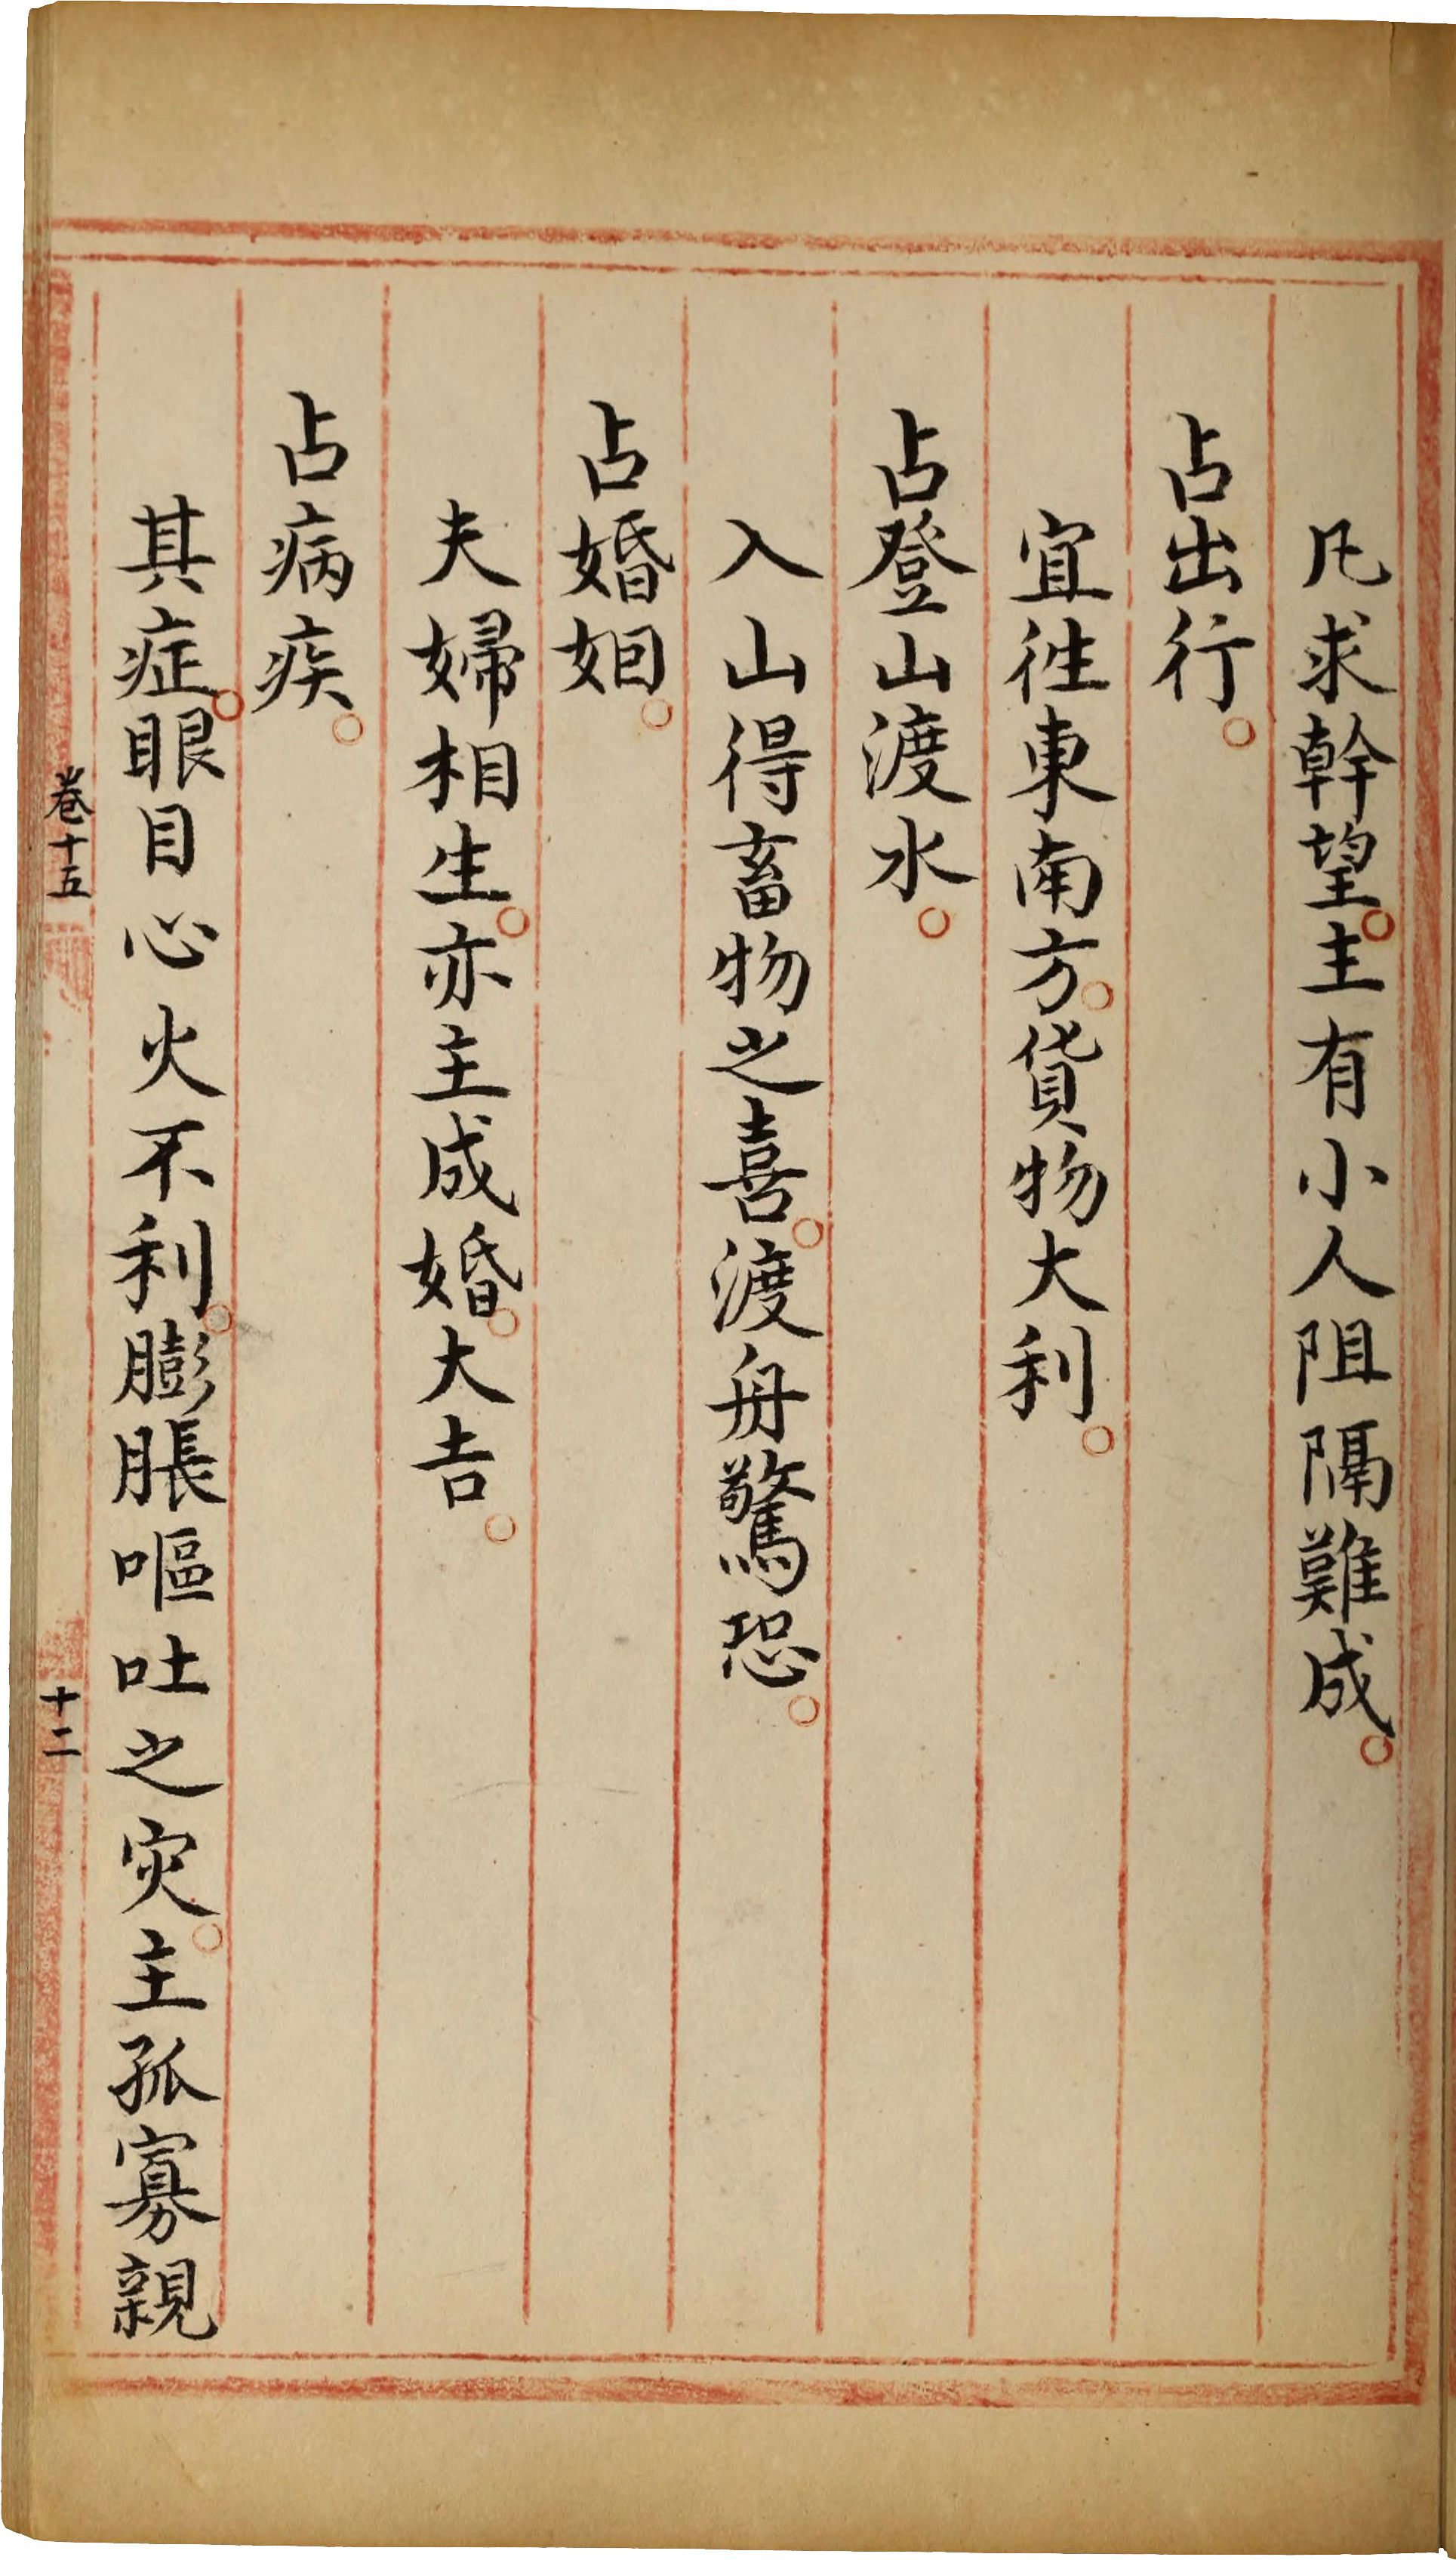 凡求幹望。主有小人阻隔難成。
占出行。
宜徃東南方。貨物大利。
占登山渡水。
入山得畜物之喜。渡舟驚恐。
占婚姻。
夫婦相生。亦主成婚。大吉。
占病疾。
其症。眼目心火不利。膨脹嘔吐之灾。主孤寡親
卷十五
十二